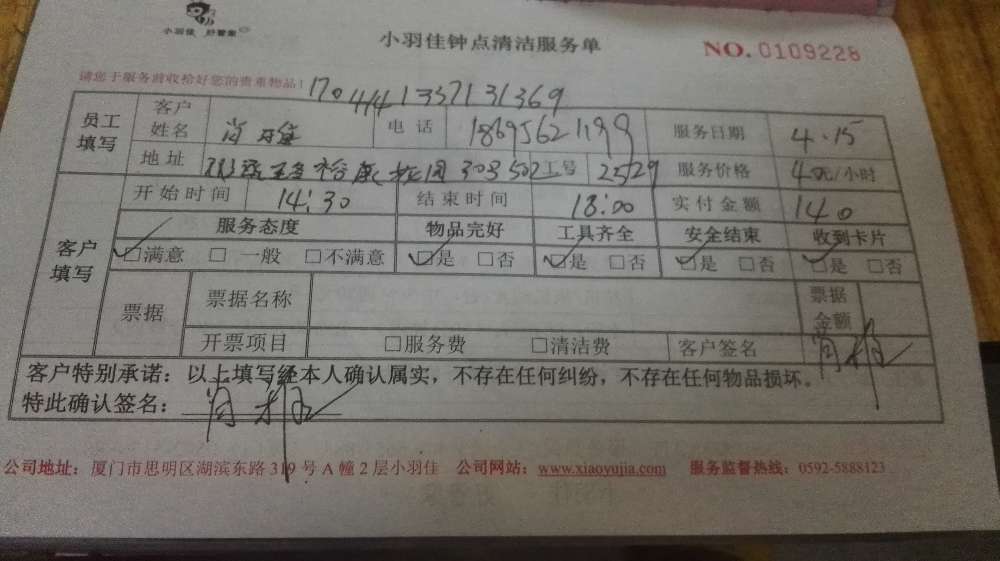 小羽佳 好管家
小羽佳钟点清洁服务单
NO. 0109228
请您于服务前收拾好您的贵重物品！
170414133713 1369
员工填写 客户姓名 肖 电话 18695621199 服务日期 4.15
地址 裕康 303 502 工号 2529 服务价格 40元/小时
客户填写 开始时间 14:30 结束时间 18:00 实付金额 140
服务态度 物品完好 工具齐全 安全结束 收到卡片
☑满意 □ 一般 □不满意 ☑是 □否 ☑是 □否 ☑是 □否 ☑是 □否
票据 票据名称 票据金额
开票项目 □服务费 □清洁费 客户签名 肖
客户特别承诺：以上填写经本人确认属实，不存在任何纠纷，不存在任何物品损坏。
特此确认签名：肖
公司地址：厦门市思明区湖滨东路319号A幢2层小羽佳 公司网站：www.xiaoyujia.com 服务监督热线：0592-5888123